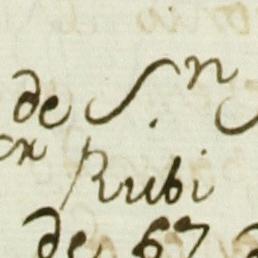 de S.n
ex Rubi
de 67